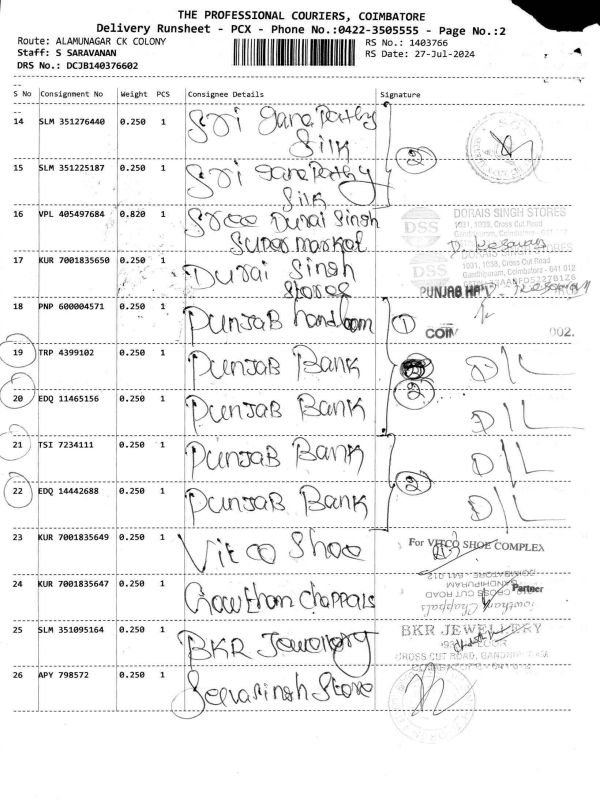 THE PROFESSIONAL COURIERS, COIMBATORE
Delivery Runsheet - PCX - Phone No.:0422-3505555 - Page No.:2
Route: ALAMUNAGAR CK COLONY
RS No.: 1403766
Staff: S SARAVANAN
RS Date: 27-Jul-2024
DRS No.: DCJB140376602
S No Consignment No Weight PCS Consignee Details Signature
14 SLM 351276440 0.250 1 Sri Ganapathy
Silk
2
15 SLM 351225187 0.250 1 Sri Ganapathy
Silk
16 VPL 405497684 0.820 1 Sree Durai Singh
Super market
DORAIS SINGH STORES
1031, 1038, Cross Cut Road
Gandhipuram, Coimbatore - 641 012
DSS
17 KUR 7001835650 0.250 1 Durai Singh
Stores
DORAIS SINGH STORES
1031, 1038, Cross Cut Road
Gandhipuram, Coimbatore - 641 012
DSS
PUNJAB
18 PNP 600004571 0.250 1 PunJaB handloom 1
COIM 002.
19 TRP 4399102 0.250 1 PunJaB Bank D/L
2
20 EDQ 11465156 0.250 1 PunJaB Bank D/L
21 TSI 7234111 0.250 1 PunJaB Bank D/L
2
22 EDQ 14442688 0.250 1 PunJaB Bank D/L
23 KUR 7001835649 0.250 1 Vitco Shoe
For VITCO SHOE COMPLEX
Partner
24 KUR 7001835647 0.250 1 Gowtham Chappals
CROSS CUT ROAD
Chappals
25 SLM 351095164 0.250 1 BKR Jewellery
BKR JEWELLERY
CROSS CUT ROAD,
26 APY 798572 0.250 1 Store